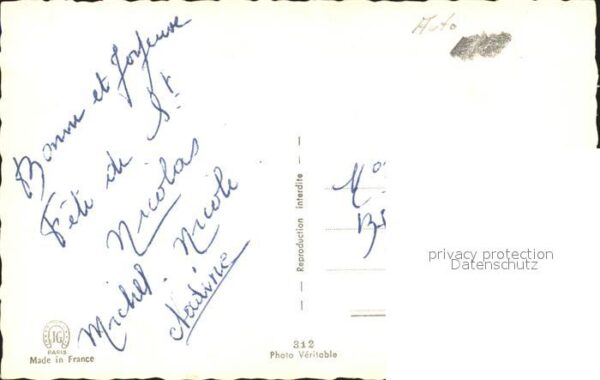 Bonne et Joyeuse
Fête de St
Nicolas
Michel. Nicole
Nadine
Auto
Reproduction interdite
privacy protection
Datenschutz
JG
PARIS
Made in France
312
Photo Véritable